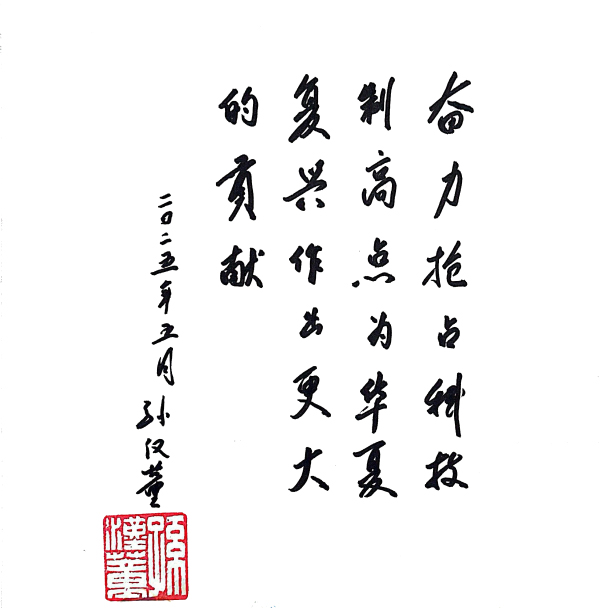 奋力抢占科技
制高点为华夏
复兴作出更大
的贡献
二〇二五年五月 孙汉董
孫漢董